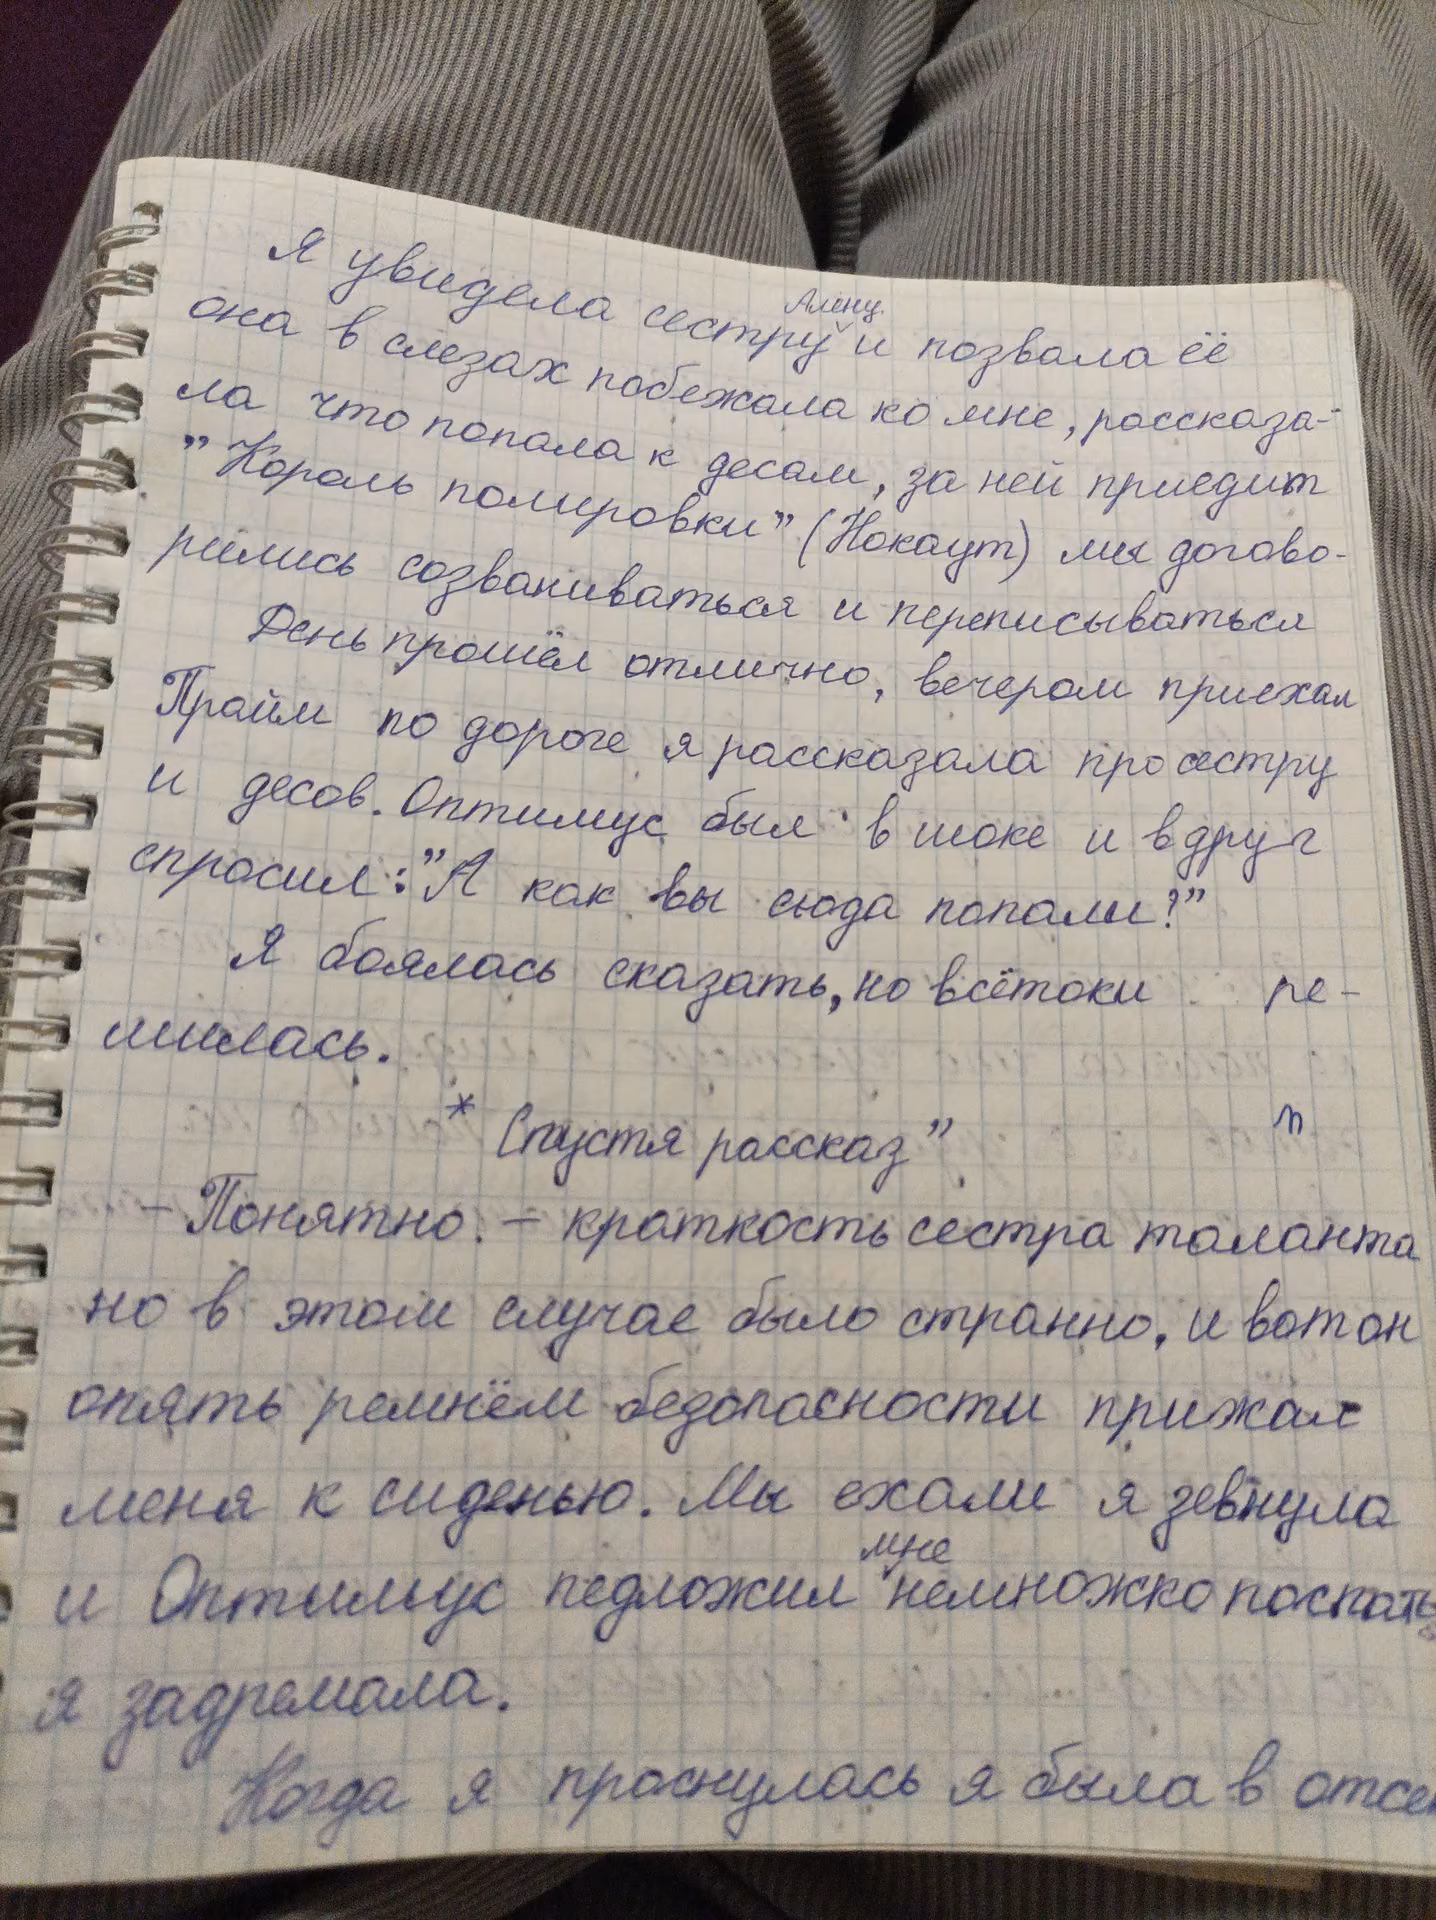 Я увидела сестру Алёну и позвала её
она в слезах побежала ко мне, рассказа-
ла что попала к десам, за ней приедит
"Король полировки" (Нокаут) мы догово-
рились созваниваться и переписываться
День прошёл отлично, вечером приехал
Прайм по дороге я рассказала про сестру
и десов. Оптимус был в шоке и вдруг
спросил: "А как вы сюда попали?"
Я боялась сказать, но всётоки ре-
шилась.
* Спустя рассказ"
п
- Понятно. - краткость сестра таланта
но в этом случае было странно, и вот он
опять ремнём безопасности прижал
меня к сиденью. Мы ехали я зевнула
и Оптимус педложил мне немножко поспать
я задремала.
Когда я проснулась я была в отсе